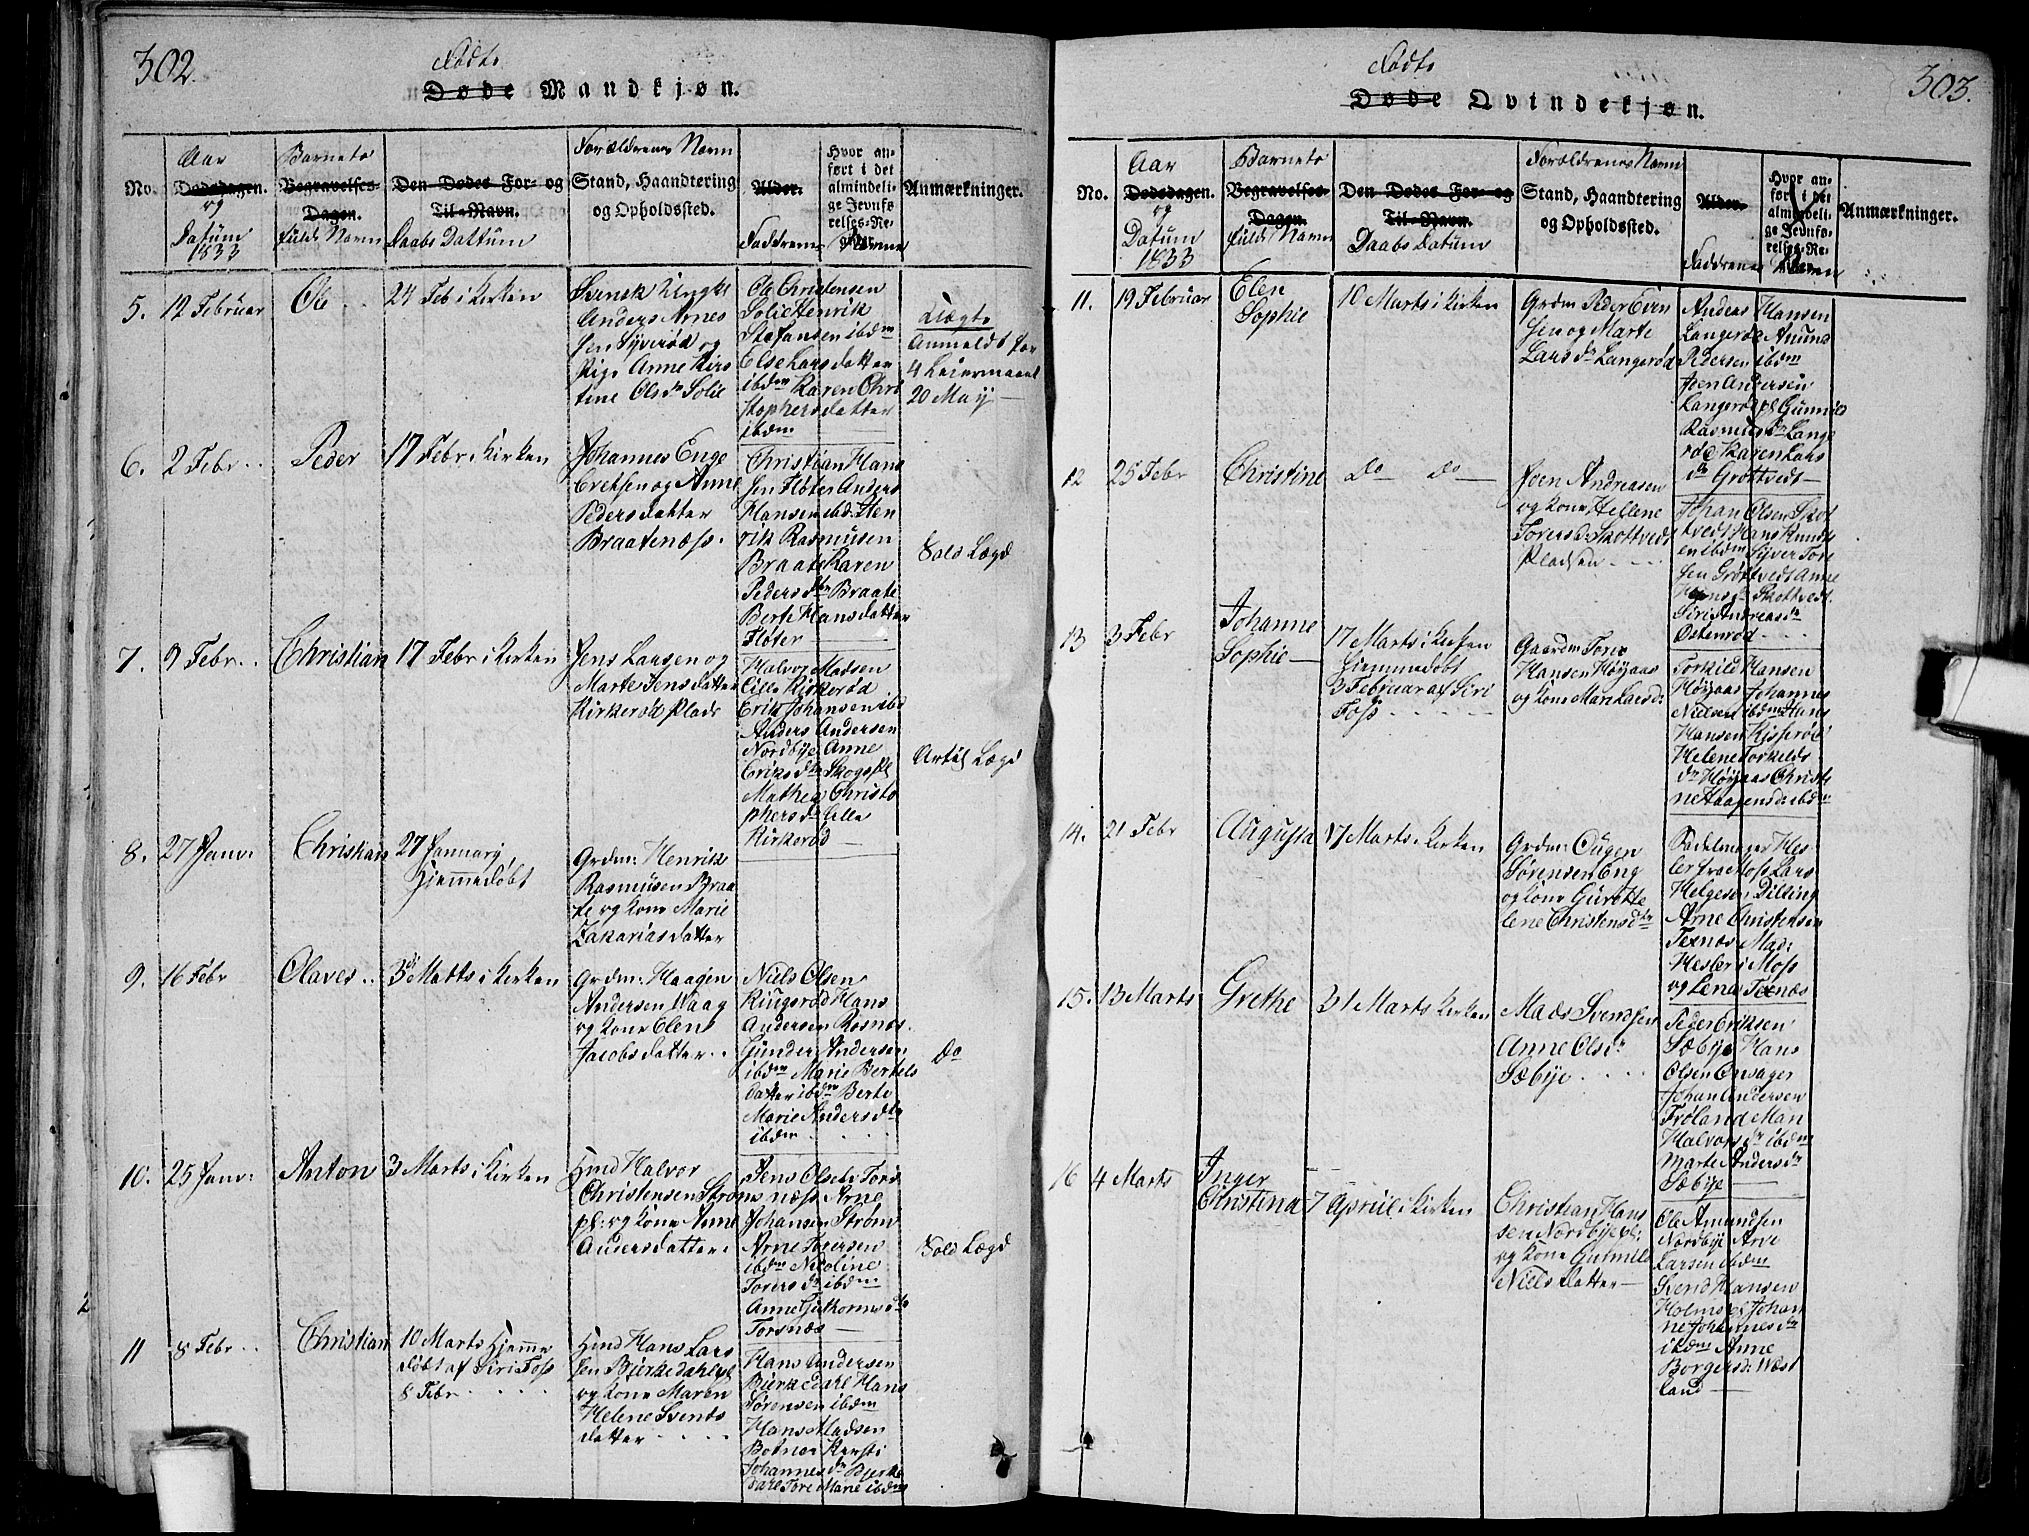 302.
Fødte
Døde Mandkjøn.
No.
Aar
Dødsdagen.
og
Datum
1833
Barnets
Begravelses-
Dagen.
fulde Navn
Den Dødes For- og
Til-Navn.
Daabs Dattum
Forældrenes Navn
Stand, Haandtering
og Opholdssted.
Alder.
Faddrenes Navne
Hvor an-
ført i det
almindeli-
ge Jevnfø-
relses-Re-
gister.
Anmærkninger.
5. 12 Februar
Ole
24 Feb i Kirken
Svensk Ungkl
Anders Arnes
sen Syverød og
Pige Anne Kirs
tine Olsdr Solie
Ole Christensen
Solie Henrik
Stefansen ibdm
Else Larsdatter
ibdm Karen Chri
stophersdatter
ibdm
Uægte
Anmeldt for
4 Leiermaal
20 May
6. 2 Febr
Peder
17 Febr i Kirken
Johannes Enge
bretsen og Anne
Pedersdatter
Braatenæs.
Christian Hans
sen Fløter Anders
Hansen ibd: Hen
rik Rasmusen
Braate Karen
Pedersdtr Braate
Berte Hansdatter
Fløter
Sold Lægd
7. 9 Febr
Christian
17 Febr i Kirken
Jens Larsen og
Marte Jensdatter
Kirkerød Plads
Halvog Madsen
Lille Kirkerød
Erik Johansen ibd
Anders Andersen
Nordbye Anne
Eriksdtr Skogspl
Mathea Christo
phersdr Lille
Kirkerød
Artil Lægd
8. 27 Janv:
Christian
27 January
Hjemmedøbt
Grdm: Henrik
Rasmusen Braa
te og Kone Marie
Zakariasdatter
9. 16 Febr
Olaves
3 Marts i Kirken
Grdm: Haagen
Andersen Waag
og Kone Elen
Jacobsdatter
Niels Olsen
Ringsrød Hans
Andersen Rosnæs
Gunder Andersen
ibdm Marie Bertels
datter ibdm Berte
Marie Andersdtr
ibdm
Do
10. 25 Janv:
Anton
3 Marts i Kirken
Hmd Halvor
Christensen Strøm
pl: og Kone Anne
Andersdatter
Jens Olsen Tors
næs Arne
Johansen Strøm
Arne Toersen
ibdm Nicoline
Toresdr ibdm
Anne Guthormsdtr
Torsnæs
Sold Lægd
11 8 Febr
Christian
10 Marts Hjemme
døbt af Siri Foss
8 Febr
Hmd Hans Lars
sen Bjerkedahlspl
og Kone Maren
Helene Svends
datter
Hans Andersen
Bjerkedahl Hans
Sørensen ibdm
Hans Madsen
Botner Kersti
Johannesdr Bjerke
dahl Tore Marie ibdm
303.
Fødte
Døde Qvindekjøn.
No.
Aar
Dødsdagen.
og
Datum
1833
Barnets
Begravelses-
Dagen.
fulde Navn
Den Dødes For- og
Til-Navn.
Daabs Datum
Forældrenes Navn
Stand, Haandtering
og Opholdssted.
Alder.
Faddrenes Navne
Hvor an-
ført i det
almindeli-
ge Jevnfø-
relses-Re-
Anmærkninger.
11. 19 Februar
Elen
Sophie
10 Marts i Kirken
Grdm Peder Even
sen og Marte
Larsdr Langerød
Anders Hansen
Langerød Anund
Pedersen ibdm
Joen Andersen
Langerød pl Gunnil
Rasmusdr Lange
rød Karen Lars
dr Grøttvedt
12 25 Febr
Christine
Do Do
Joen Andreasen
og Kone Hellene
Toresd: Skottvedt
Pladsen
Johan Olsen Skot
tvedt Hans Knuds
en ibdm Syver Tore
sen Grøttvedt Anne
Hansdr Skottvedt
Siri Andreasdr
Østenrød
13 3 Febr
Johanne
Sophie
17 Marts i Kirken
Hjemmedøbt
3 Februar af Siri
Foss
Gaardm Tore
Hansen Høyaas
og Kone Mari Larsd:
Torkild Hansen
Høyaas Johannes
Nielsen ibdm Hans
Hansen Kisserød
Helene Torkelds
dr Høyaas Christi
ne Haagensdr ibdm
14. 21 Febr
Augusta
17 Marts i Kirken
Grdm: Ougen
Sørensen Eng
og Kone Gurotte
lene Christensdtr
Sadelmager Hes
ler fra Moss Lars
Helgesen Dilling
Arne Christensen
Texnæs Mad:
Hesler i Moss
og Lena Texnæs
15. 13 Marts
Grethe
31 Marts Kirken
Mads Svendsen
Anne Olsdr
Sæbye
Peder Eriksen
Sæbye Hans
Olsen Onsager
Johan Andersen
Frøland Mari
Halvorsdr ibdm
Marte Andersdr
Sæbye
16 4 Marts
Inger
Christina
7 Apriil i Kirken
Christian Hans
sen Nordbye pl:
og Kone Gunnild
Nielsdatter
Ole Amundsen
Nordbye Arve
Larsen ibdm
Svend Hansen
Holms pl Johan
ne Johannesdr
ibdm Anne
Borgersd: Wæst
land